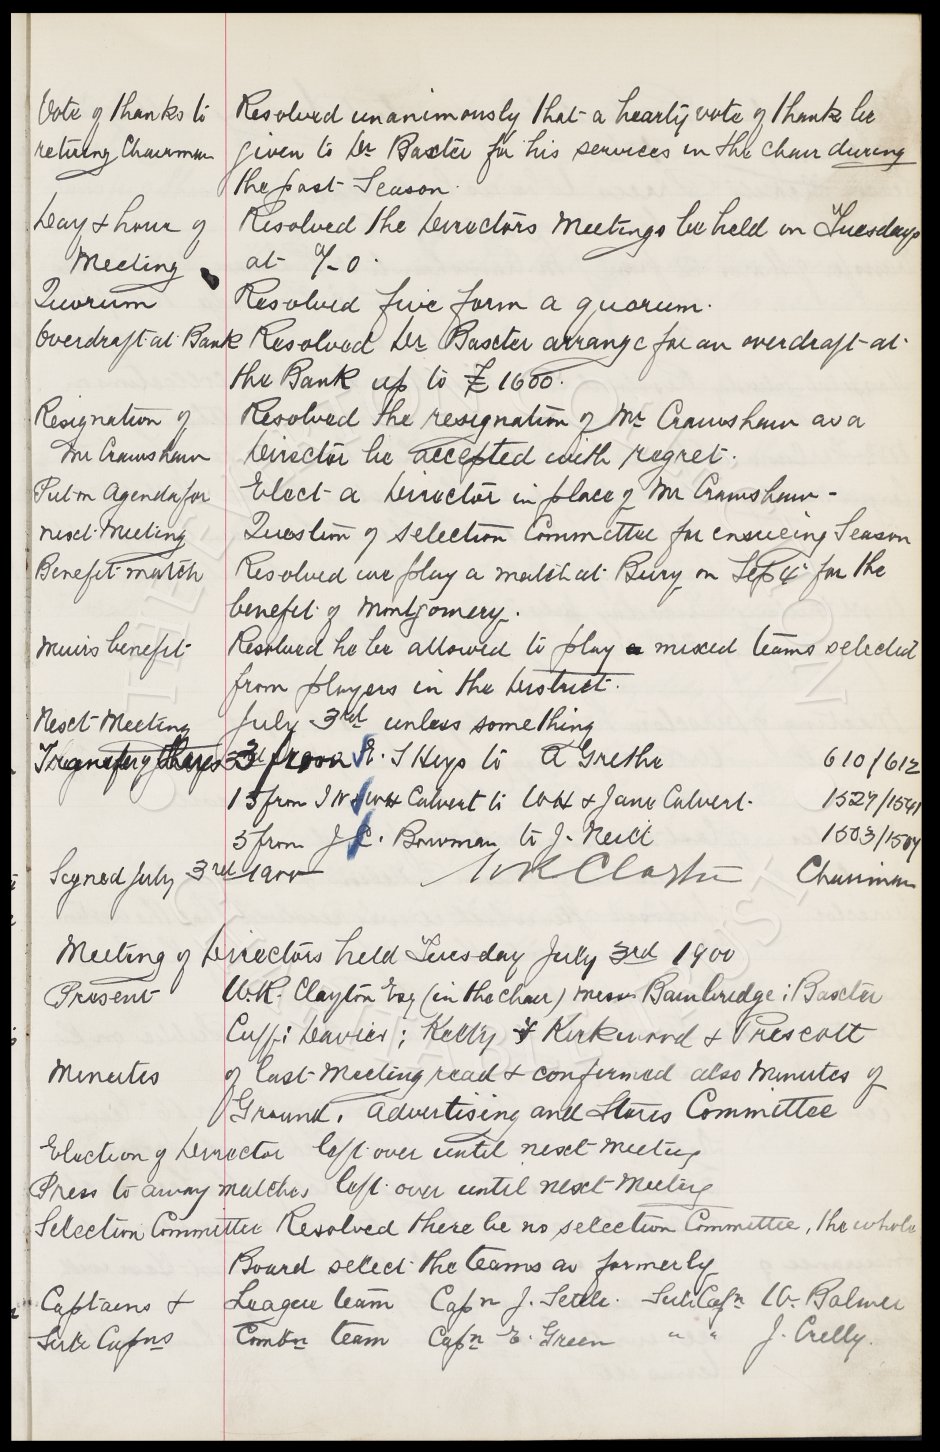 Vote of thanks to Resolved unanimously that a hearty vote of thanks be
retiring Chairman given to Dr Baxter for his services in the chair during
the past Season.
Day & hour of Resolved the Directors Meetings be held on Tuesdays
Meeting at 7-0.
Quorum Resolved five form a quorum.
Overdraft at Bank Resolved Dr Baxter arrange for an overdraft at
the Bank up to £1600.
Resignation of Resolved the resignation of Mr Crawshaw as a
Mr Crawshaw Director be accepted with regret.
Put on Agenda for Elect a Director in place of Mr Crawshaw -
next Meeting Question of Selection Committee for ensueing Season
Benefit match Resolved we play a match at Bury on Sep 4 for the
benefit of Montgomery.
Muirs benefit Resolved he be allowed to play a mixed teams selected
from players in the District.
Next Meeting July 3rd unless something
Transfer of Shares 3 from S Keys to A Grethe 610/612
15 from Calvert to W H & Jane Calvert. 1527/1541
5 from J. C. Bowman to J. Neill 1503/1507
Signed July 3rd 1900 W R Clayton Chairman
Meeting of Directors held Tuesday July 3rd 1900
Present W.R. Clayton Esq (in the chair) Messrs Bainbridge: Baxter
Cuff: Davies; Kelly Kirkwood & Prescott
Minutes of last Meeting read & confirmed also Minutes of
Ground, Advertising and Stores Committee
Election of Director left over until next Meeting
Press to away matches left over until next Meeting
Selection Committee Resolved there be no selection Committee, the whole
Board select the teams as formerly
Captains & League team Capn J. Settle. Sub Capn W. Balmer
Sub Capns Combn team Capn E. Green " " J. Crelly.